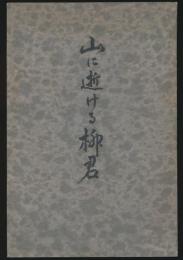 山に逝ける柳君